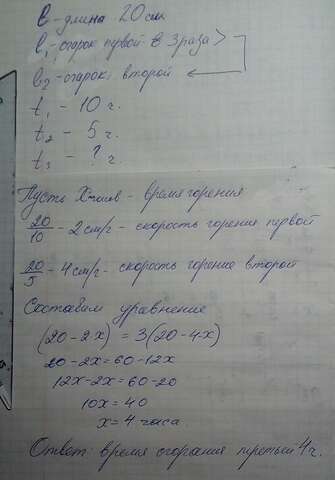 l - длина 20 см
l₁ - огарок первой в 3 раза >
l₂ - огарок второй
t₁ - 10 ч.
t₂ - 5 ч.
t₃ - ? ч.
Пусть X-часов - время горения
20/10 - 2 см/г - скорость горения первой
20/5 - 4 см/г - скорость горение второй
Составим уравнение
(20-2x) = 3(20-4x)
20-2x=60-12x
12x-2x=60-20
10x=40
x=4 часа
Ответ: время сгорания третьей 4 г.